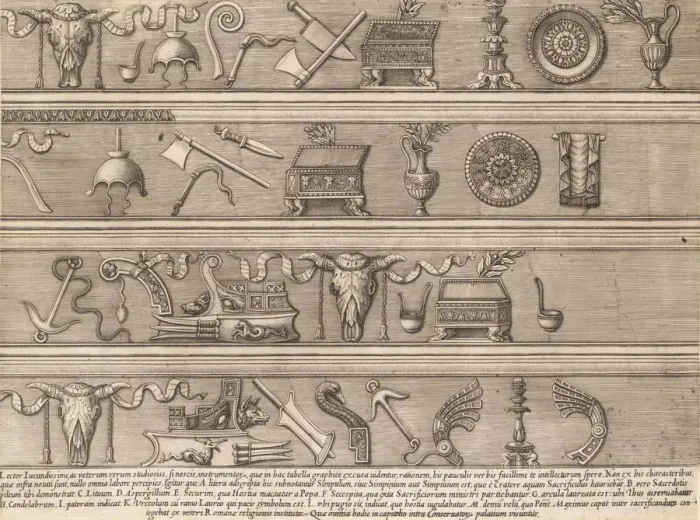 Lector Iucundissime, ac veterum rerum studiosiss. si nescis, instrumentor. que in hac tabella graphice excusa videntur, rationem, his pauculis verbis facillime te intellecturum spero. Nan ex his characteribus,
que infra notati sunt, nullo omnia labore percipies. Igitur que A litera adscripta hic subnotantur Simpulum, siue Simpinium aut Simpuuium est, quo è Cratere aquam Sacrificulus hauriebat. B. vero Sacerdotis
pileum tibi demonstrat. C. Lituum. D. Aspergillum E. Securim, qua Hostia mactatur a Popa. F. Secespita, qua exta Sacrificiorum ministri partiebantur. G. arcula laureata est: ubi Thus asseruabatur
H. Candelabrum. I. pateram indicat K. Vrceolum cū ramo Laureo qui pacis symbolum est. L. vbi pugio sit, indicat, quo hostia iugulabatur. M. demū velū, quo Pont. Maximus caput inter sacrificandum con-
tegebat ex veteri Romane religionis instituto. Que omnia hodie in capitolio intra Conservator. palatium visuntur.